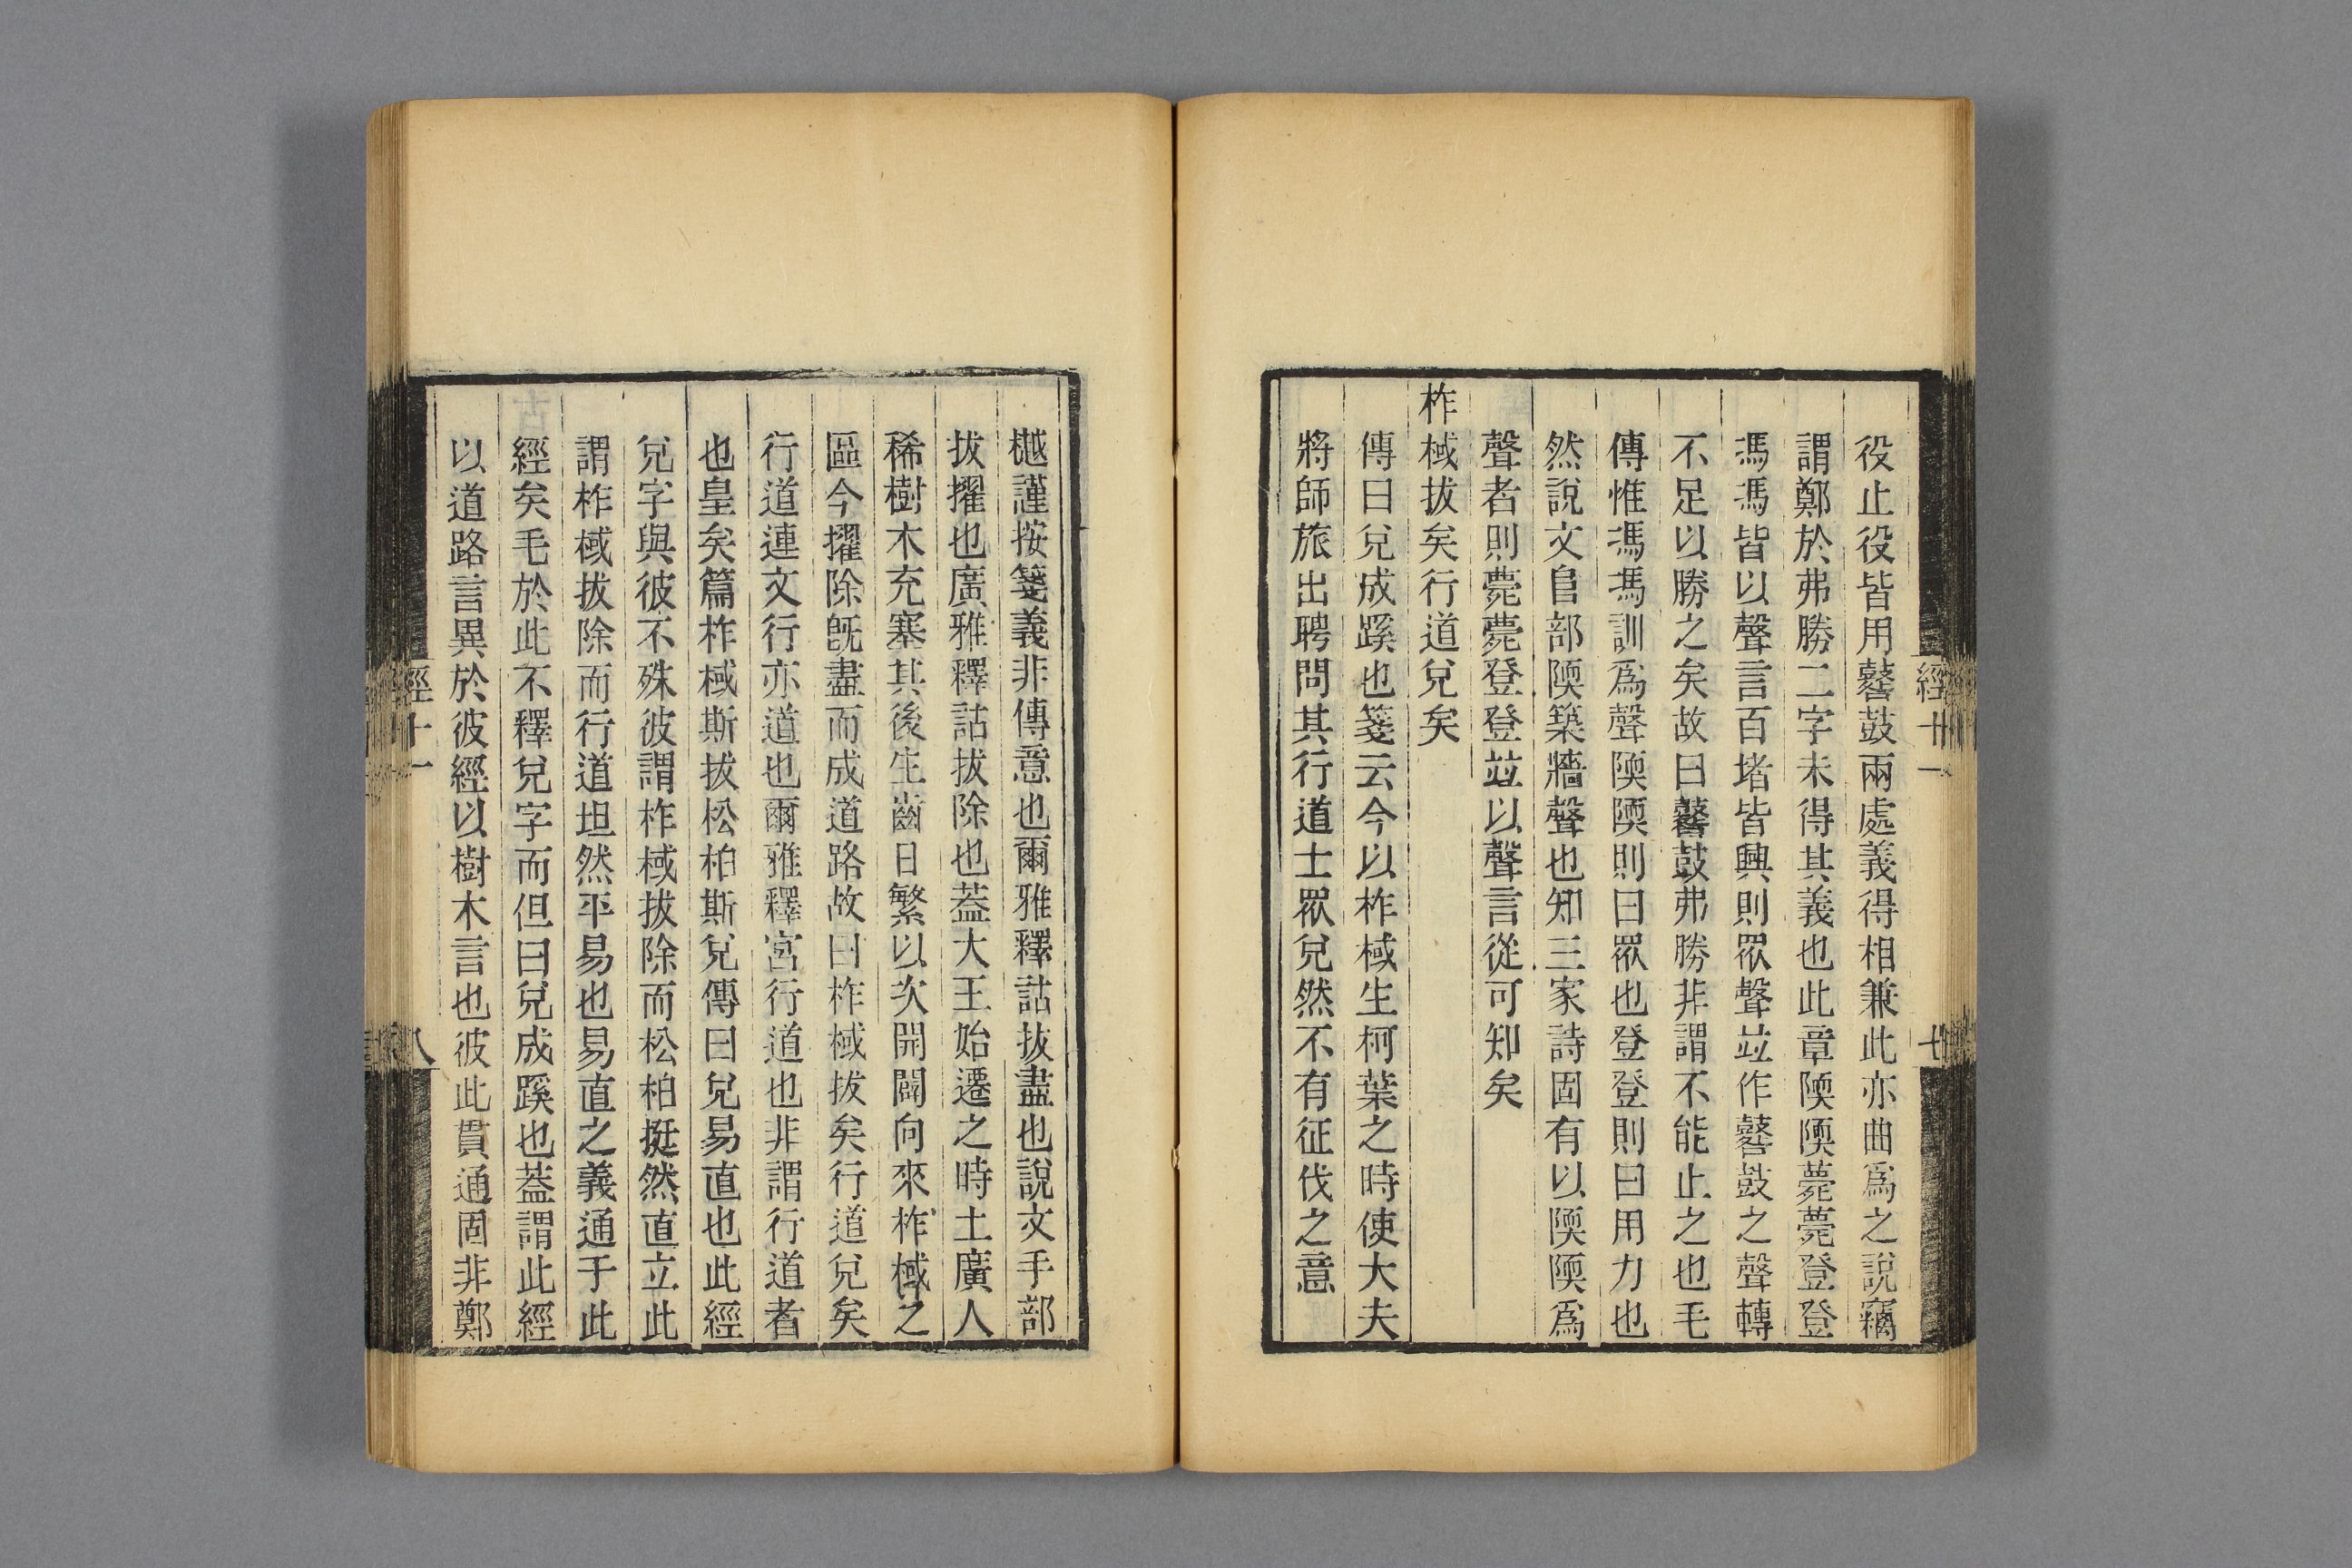 役止役皆用鼛鼓兩處義得相兼此亦曲爲之說竊
謂鄭於弗勝二字未得其義也此章陾陾薨薨登登
馮馮皆以聲言百堵皆興則眾聲竝作鼛鼓之聲轉
不足以勝之矣故曰鼛鼓弗勝非謂不能止之也毛
傳惟馮馮訓爲聲陾陾則曰眾也登登則曰用力也
然說文𨸏部陾築牆聲也知三家詩固有以陾陾爲
聲者則薨薨登登竝以聲言從可知矣
柞棫拔矣行道兌矣
傳曰兌成蹊也箋云今以柞棫生柯葉之時使大夫
將師旅出聘問其行道士眾兌然不有征伐之意
經十一
七
樾謹按箋義非傳意也爾雅釋詁拔盡也說文手部
拔擢也廣雅釋詁拔除也葢大王始遷之時土廣人
稀樹木充塞其後生齒日繁以次開闢向來柞棫之
區今擢除旣盡而成道路故曰柞棫拔矣行道兌矣
行道連文行亦道也爾雅釋宮行道也非謂行道者
也皇矣篇柞棫斯拔松柏斯兌傳曰兌易直也此經
兌字與彼不殊彼謂柞棫拔除而松柏挺然直立此
謂柞棫拔除而行道坦然平易也易直之義通于此
經矣毛於此不釋兌字而但曰兌成蹊也葢謂此經
以道路言異於彼經以樹木言也彼此貫通固非鄭
經十一
八